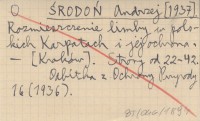 ŚRODOŃ Andrzej [1937]
Rozmieszczenie limby w pols-
kich Karpatach i jej ochrona.
- [Kraków]. Strony od 22-42.
Odbitka z Ochrony Przyrody
16 (1936).